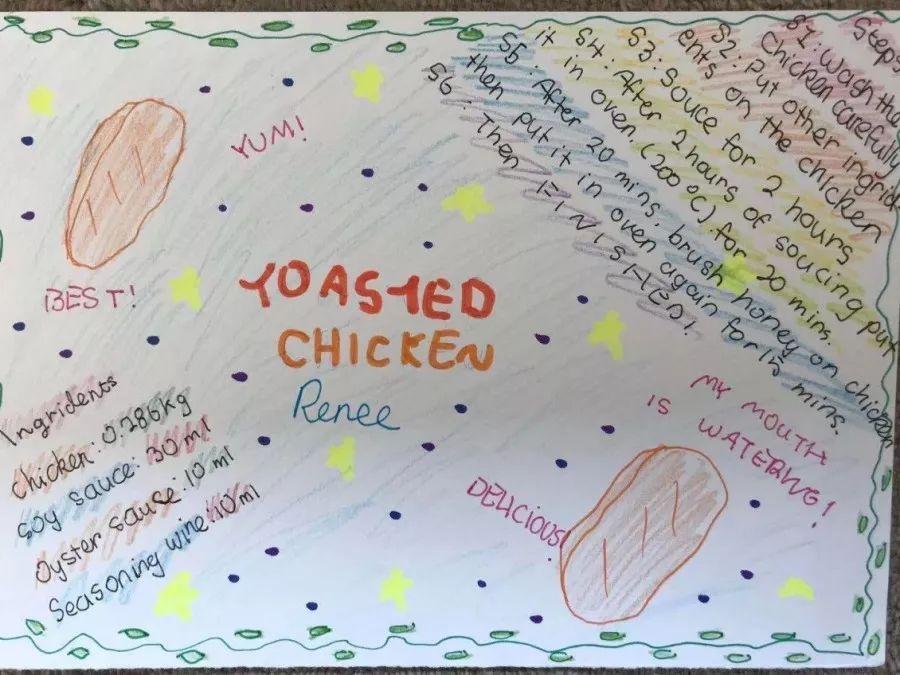 Steps
S1: Wash the
Chicken carefully
S2: Put other ingrid
ents on the chicken
S3: Souce for 2 hours
S4: After 2 hours of soucing put
it in oven. (200°C) for 20 mins.
S5: After 20 mins, brush honey on chicken
then put it in oven again for 15 mins.
S6: Then FINISHED!
YUM!
BEST!
TOASTED
CHICKEN
Renee
Ingridents
Chicken: 0.786kg
Soy sauce: 30 ml
Oyster sauce: 10 ml
Seasoning wine: 10 ml
MY MOUTH
IS WATERING!
DELICIOUS!